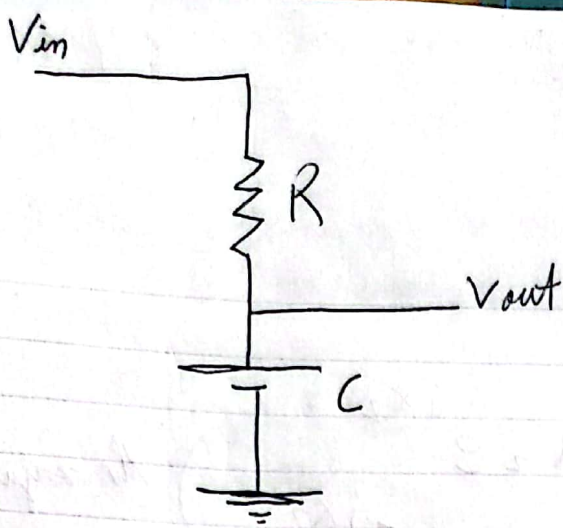 Vin
R
Vout
C